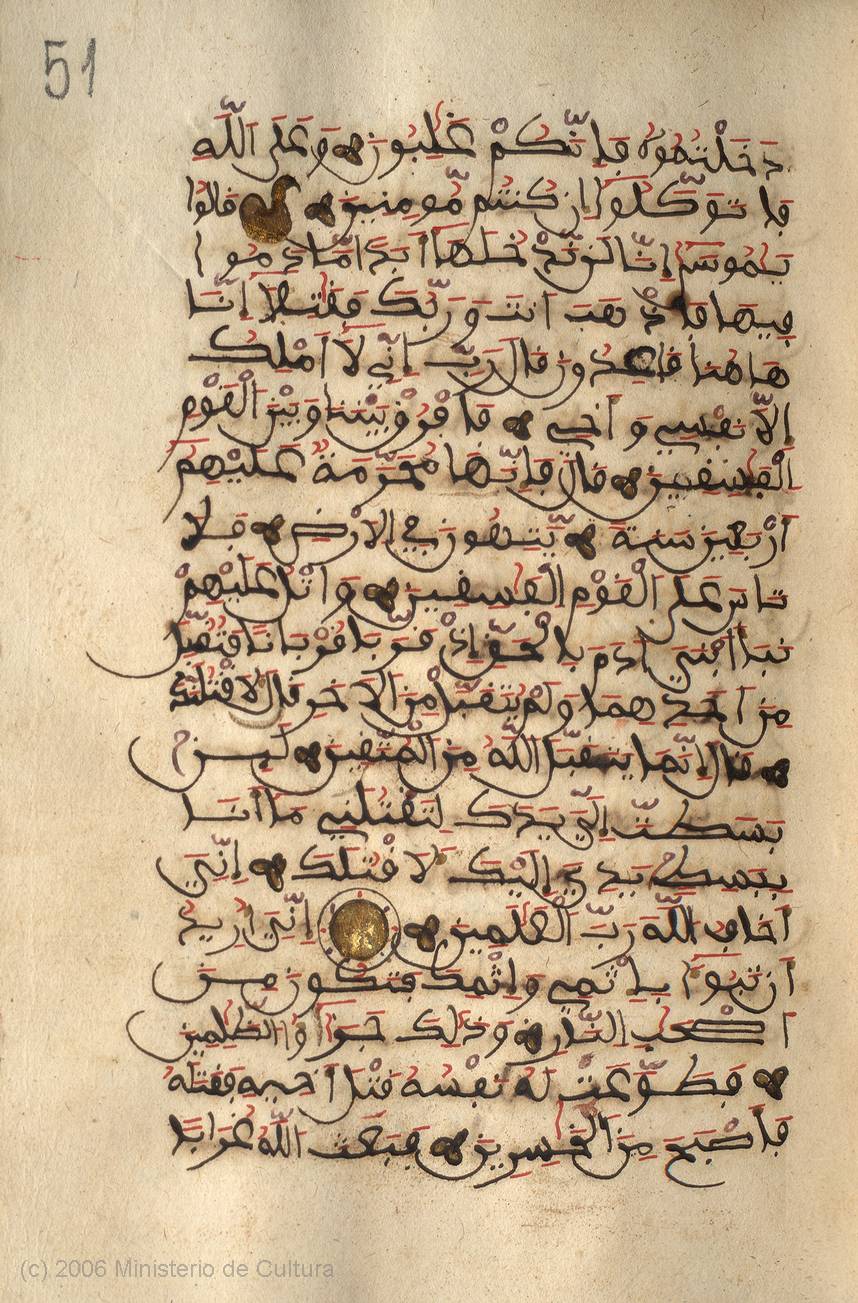 51
دَخَلْتُمُوهُ فَإِنَّكُمْ غَٰلِبُونَ وَعَلَى ٱللَّهِ
فَتَوَكَّلُوٓا۟ إِن كُنتُم مُّومِنِينَ قَالُوا۟
يَٰمُوسَىٰٓ إِنَّا لَن نَّدْخُلَهَآ أَبَدًا مَّا دَامُوا۟
فِيهَا فَٱذْهَبْ أَنتَ وَرَبُّكَ فَقَٰتِلَآ إِنَّا
هَاهُنَا قَٰعِدُونَ قَالَ رَبِّ إِنِّي لَآ أَمْلِكُ
إِلَّا نَفْسِي وَأَخِي فَٱفْرُقْ بَيْنَنَا وَبَيْنَ ٱلْقَوْمِ
ٱلْفَٰسِقِينَ قَالَ فَإِنَّهَا مُحَرَّمَةٌ عَلَيْهِمْ
أَرْبَعِينَ سَنَةً يَتِيهُونَ فِي ٱلْأَرْضِ فَلَا
تَاسَ عَلَى ٱلْقَوْمِ ٱلْفَٰسِقِينَ وَٱتْلُ عَلَيْهِمْ
نَبَأَ ٱبْنَيْ ءَادَمَ بِٱلْحَقِّ إِذْ قَرَّبَا قُرْبَانًا فَتُقُبِّلَ
مِنْ أَحَدِهِمَا وَلَمْ يُتَقَبَّلْ مِنَ ٱلْأَخَرِ قَالَ لَأَقْتُلَنَّكَ
قَالَ إِنَّمَا يَتَقَبَّلُ ٱللَّهُ مِنَ ٱلْمُتَّقِينَ لَئِنۢ
بَسَطتَّ إِلَيَّ يَدَكَ لِتَقْتُلَنِي مَآ أَنَا
بِبَاسِطٍ يَدِيَ إِلَيْكَ لِأَقْتُلَكَ إِنِّيَ
أَخَافُ ٱللَّهَ رَبَّ ٱلْعَٰلَمِينَ إِنِّيَ أُرِيدُ
أَن تَبُوٓأَ بِإِثْمِي وَإِثْمِكَ فَتَكُونَ مِنْ
أَصْحَٰبِ ٱلنَّارِ وَذَٰلِكَ جَزَٰٓؤُا۟ ٱلظَّٰلِمِينَ
فَطَوَّعَتْ لَهُ نَفْسُهُ قَتْلَ أَخِيهِ فَقَتَلَهُ
فَأَصْبَحَ مِنَ ٱلْخَٰسِرِينَ فَبَعَثَ ٱللَّهُ غُرَابًا
(c) 2006 Ministerio de Cultura